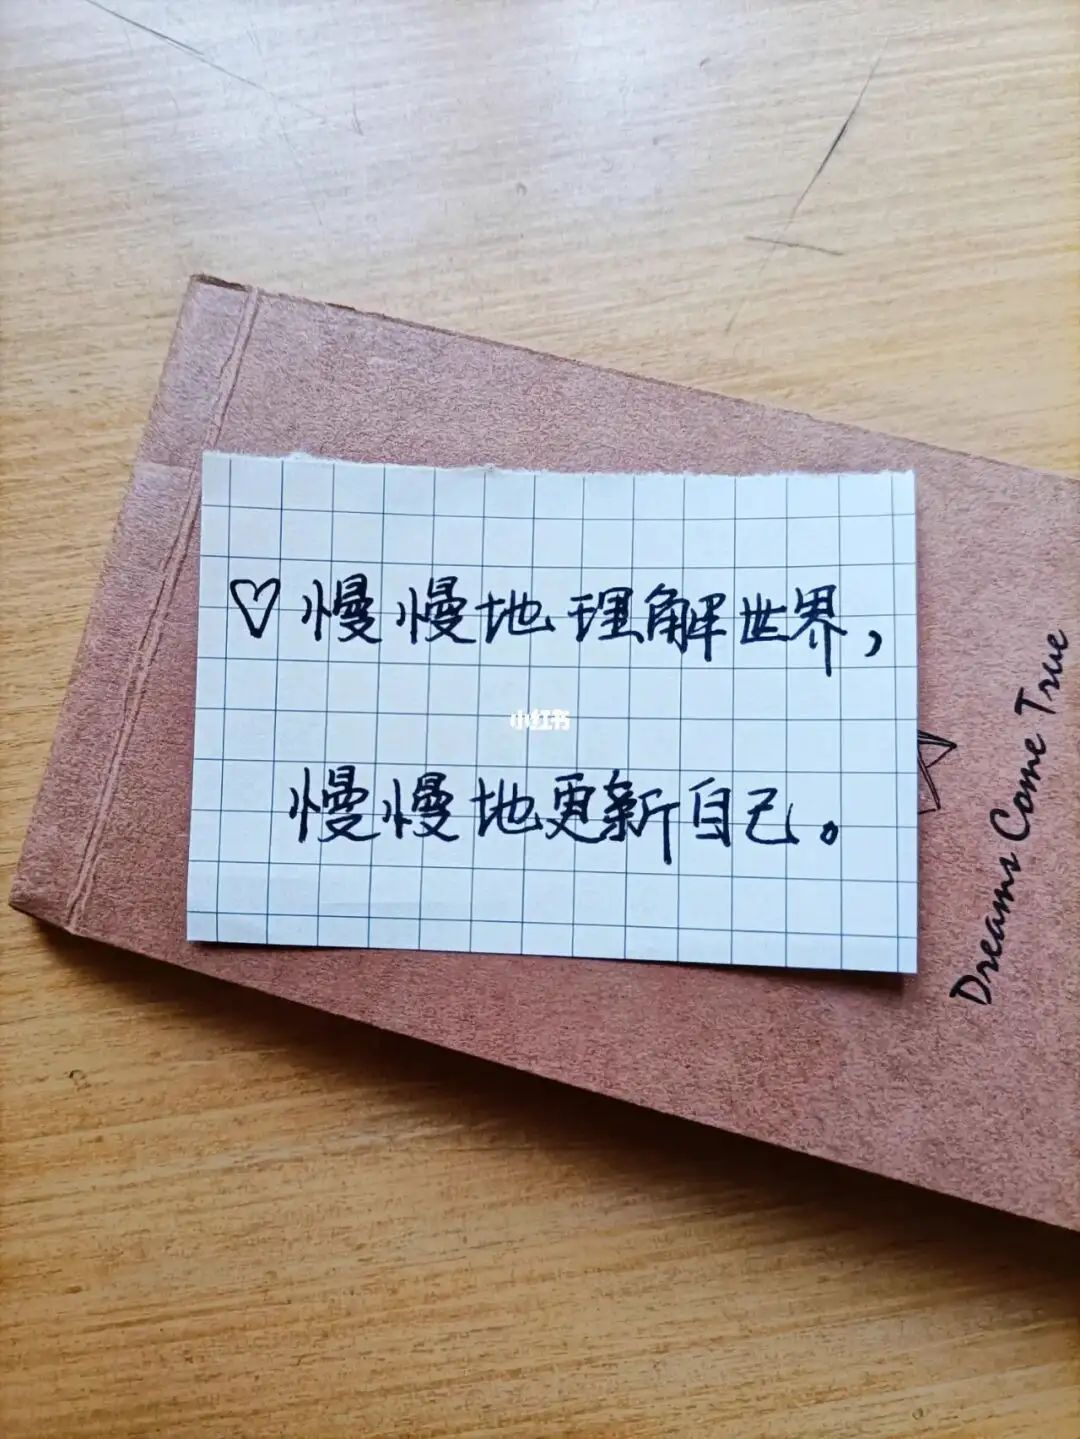 ♡慢慢地理解世界,
小红书
慢慢地更新自己。
Dreams Come True